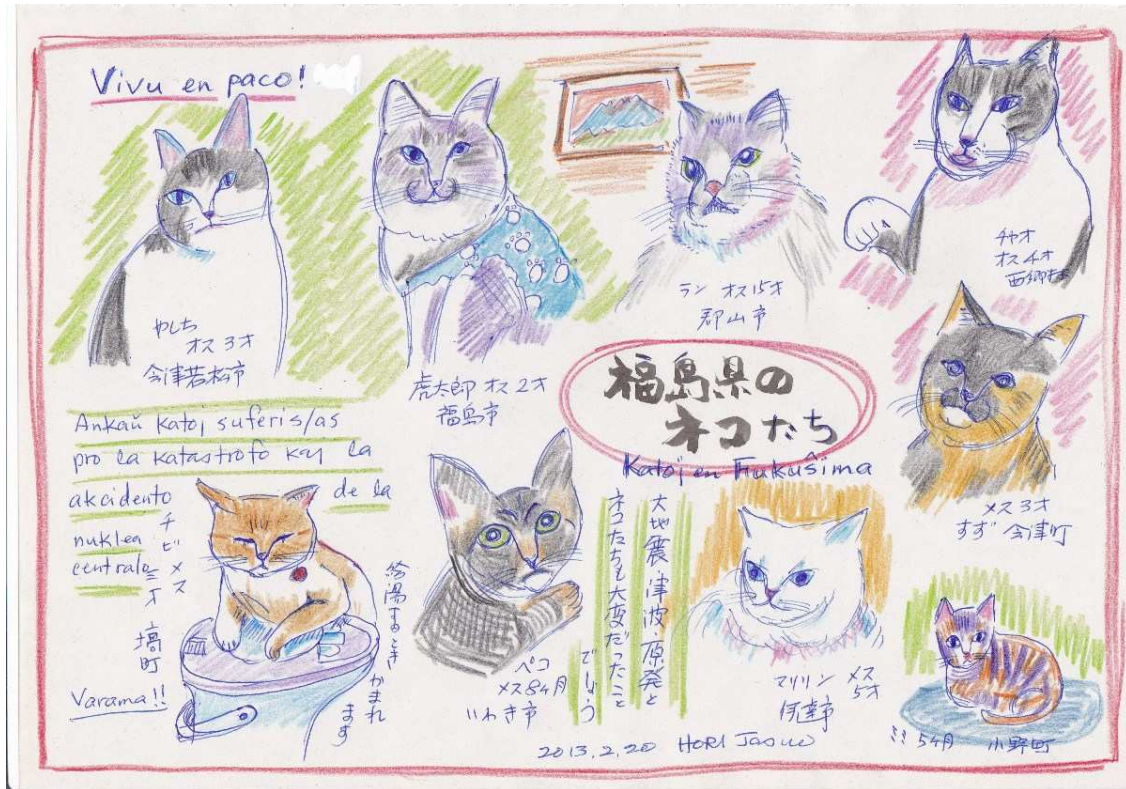 Vivu en paco!
やしち
オス 3才
会津若松市
虎太郎 オス 2才
福島市
ラン オス 15才
郡山市
チャオ
オス 4才
西郷村
福島県の
ネコたち
Katoj en Fukuŝima
Ankaŭ katoj suferis/as
pro la katastrofo kaj la
akcidento de la
nuklea
centralo
チビ メス
三才
塙町
Varama!!
給湯するとき かまれ
ます
ペコ
メス 8ヶ月
いわき市
大地震・津波・原発と
ネコたちも大変だったこと
でしょう
マリリン メス
5才
伊達市
メス 3才
すず 会津町
ミミ 5ヶ月 小野町
2013.2.20 HORI Jasuo